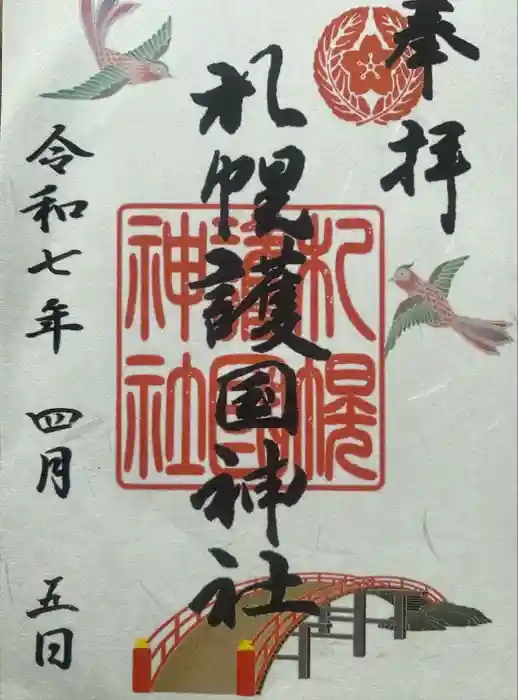 奉拝
札幌護国神社
札幌
護国
神社
令和七年 四月 五日